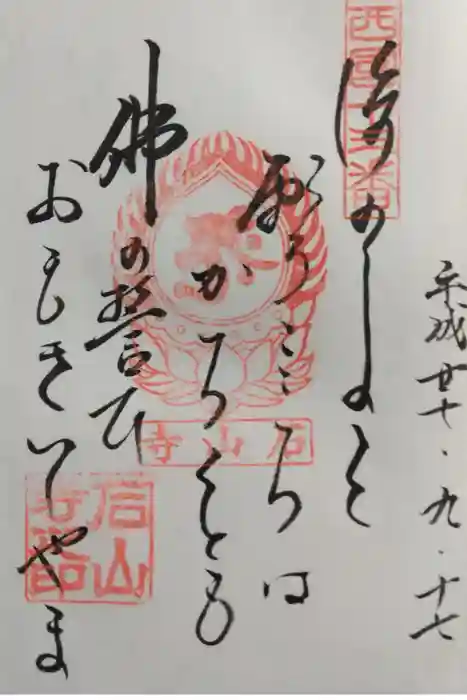 平成廿十・九・十七
西国十三番
願うこころは
かろくとも
佛の誓ひ
おもきいしやま
石山寺